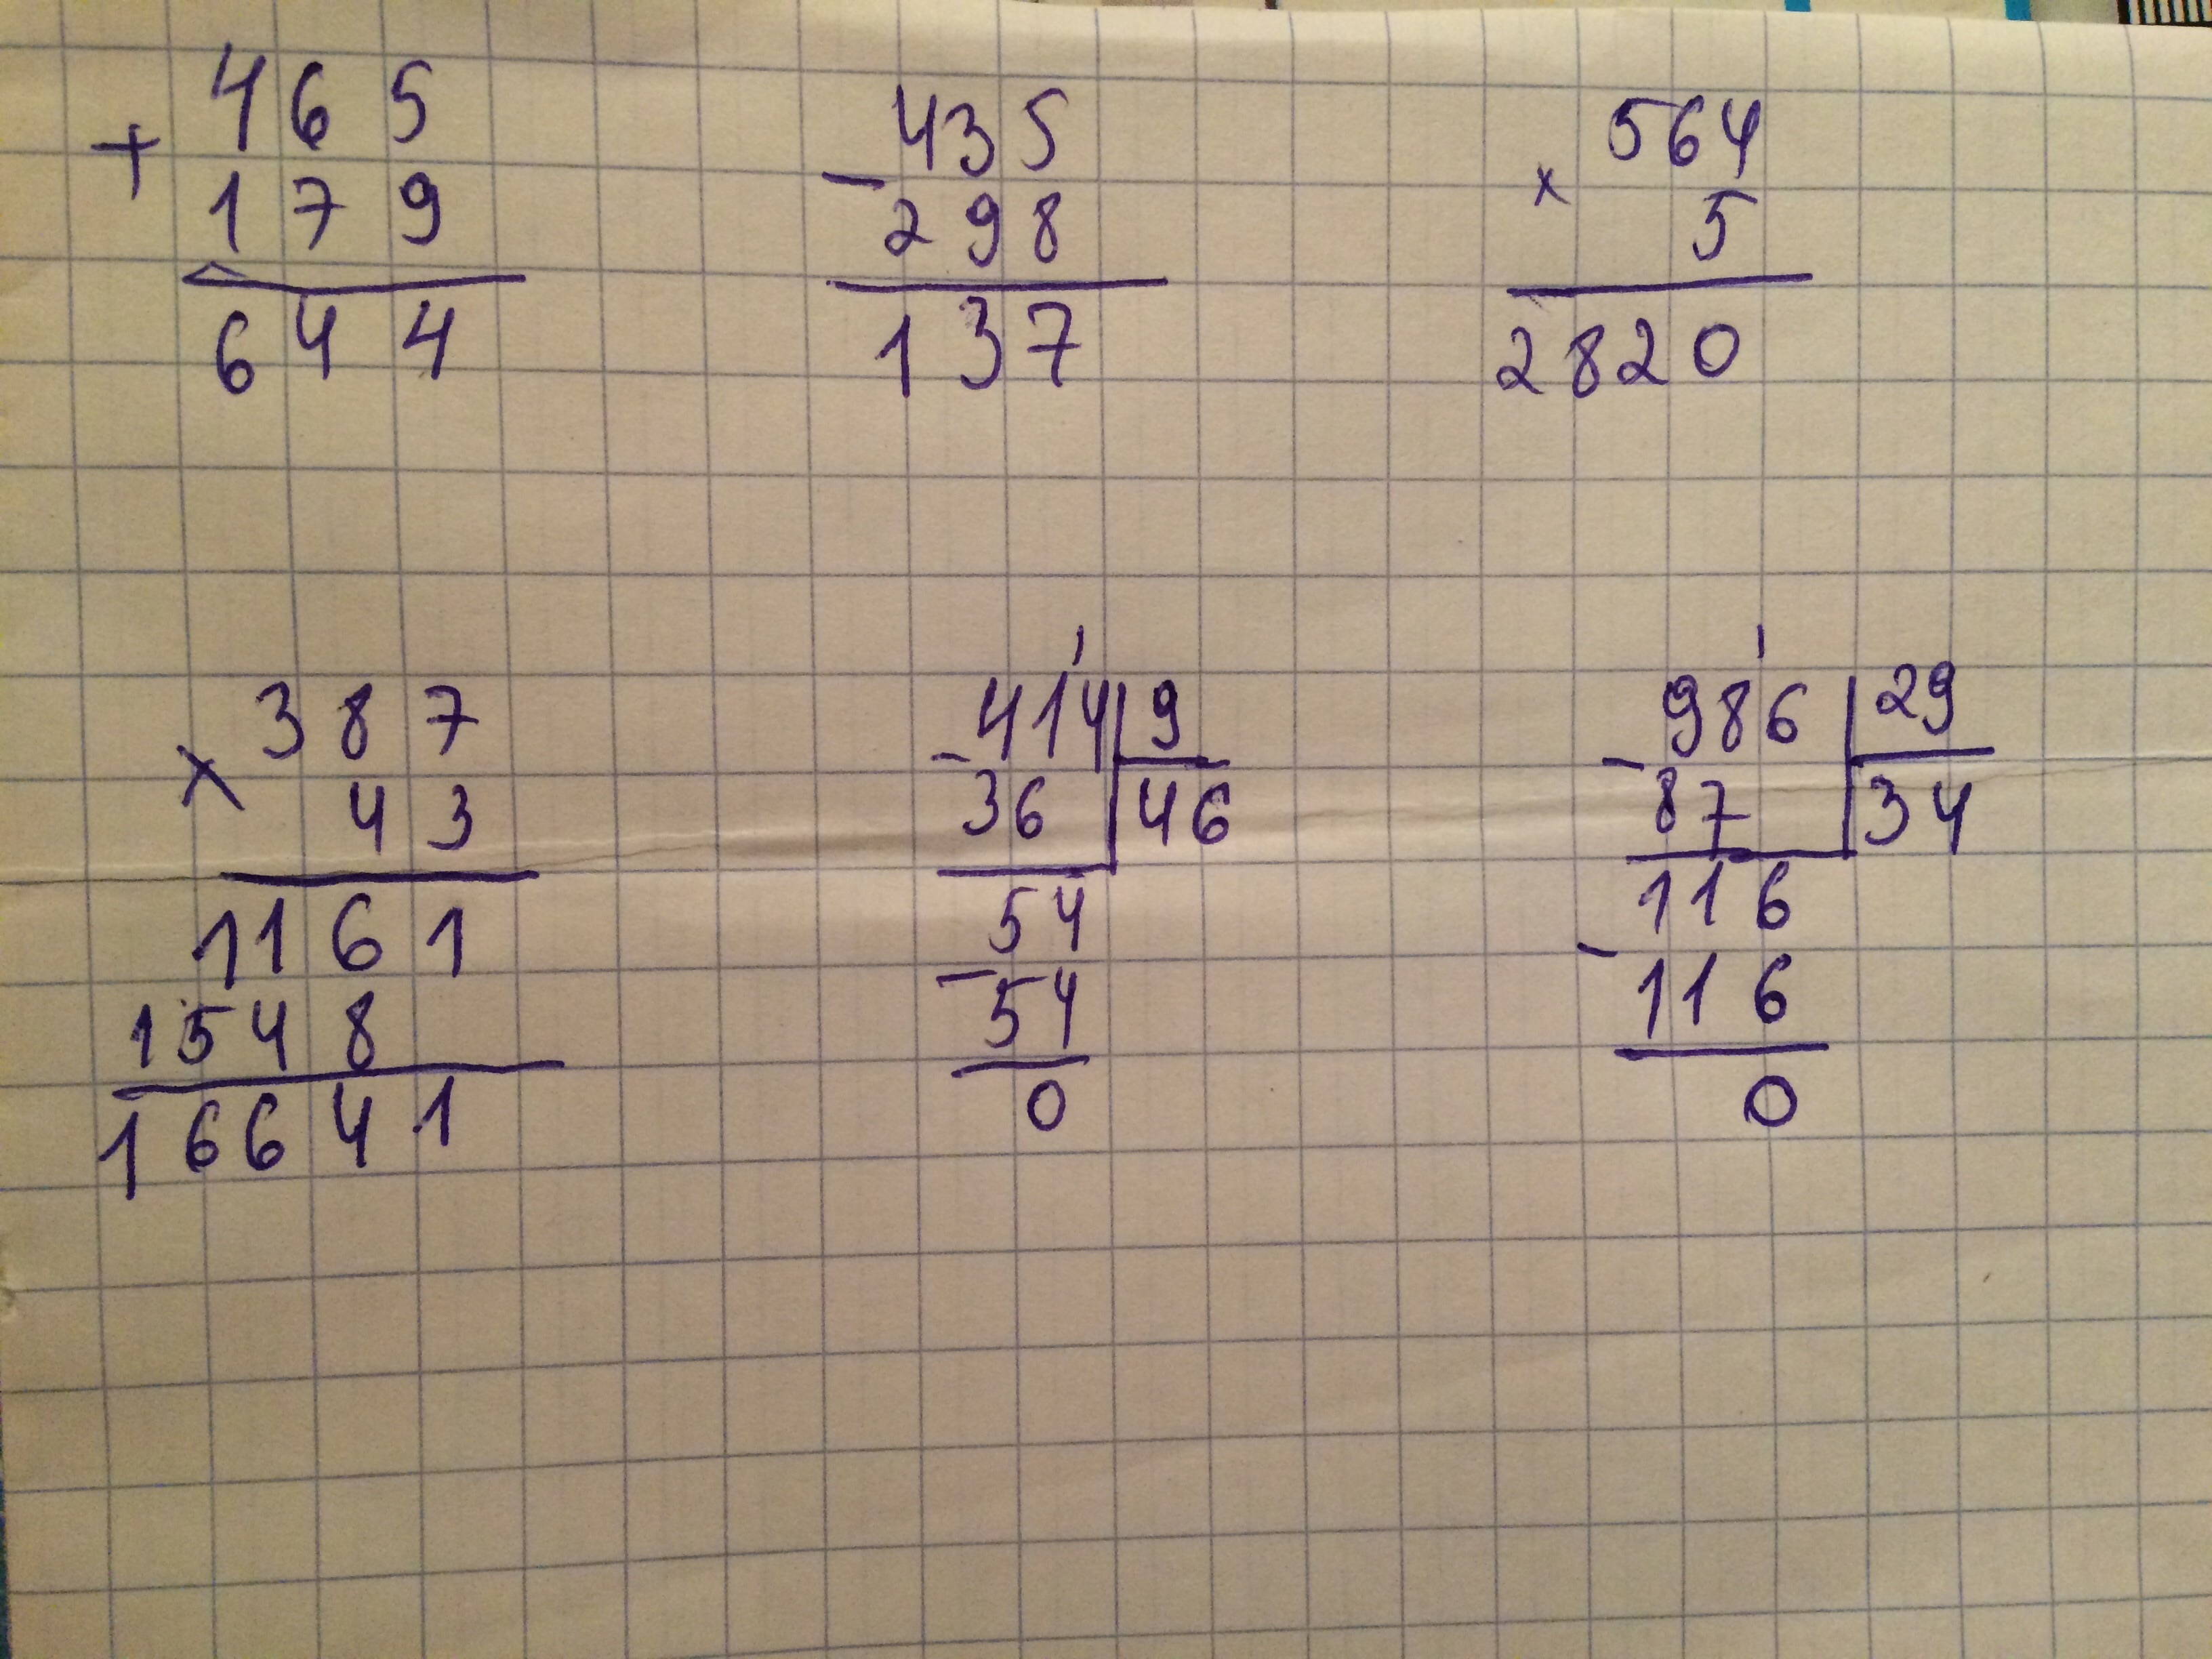 + 465
179
644
- 435
298
137
x 564
5
2820
x 387
43
1161
1548
16641
'
- 414 9
36 46
54
- 54
0
'
- 986 29
87 34
116
- 116
0